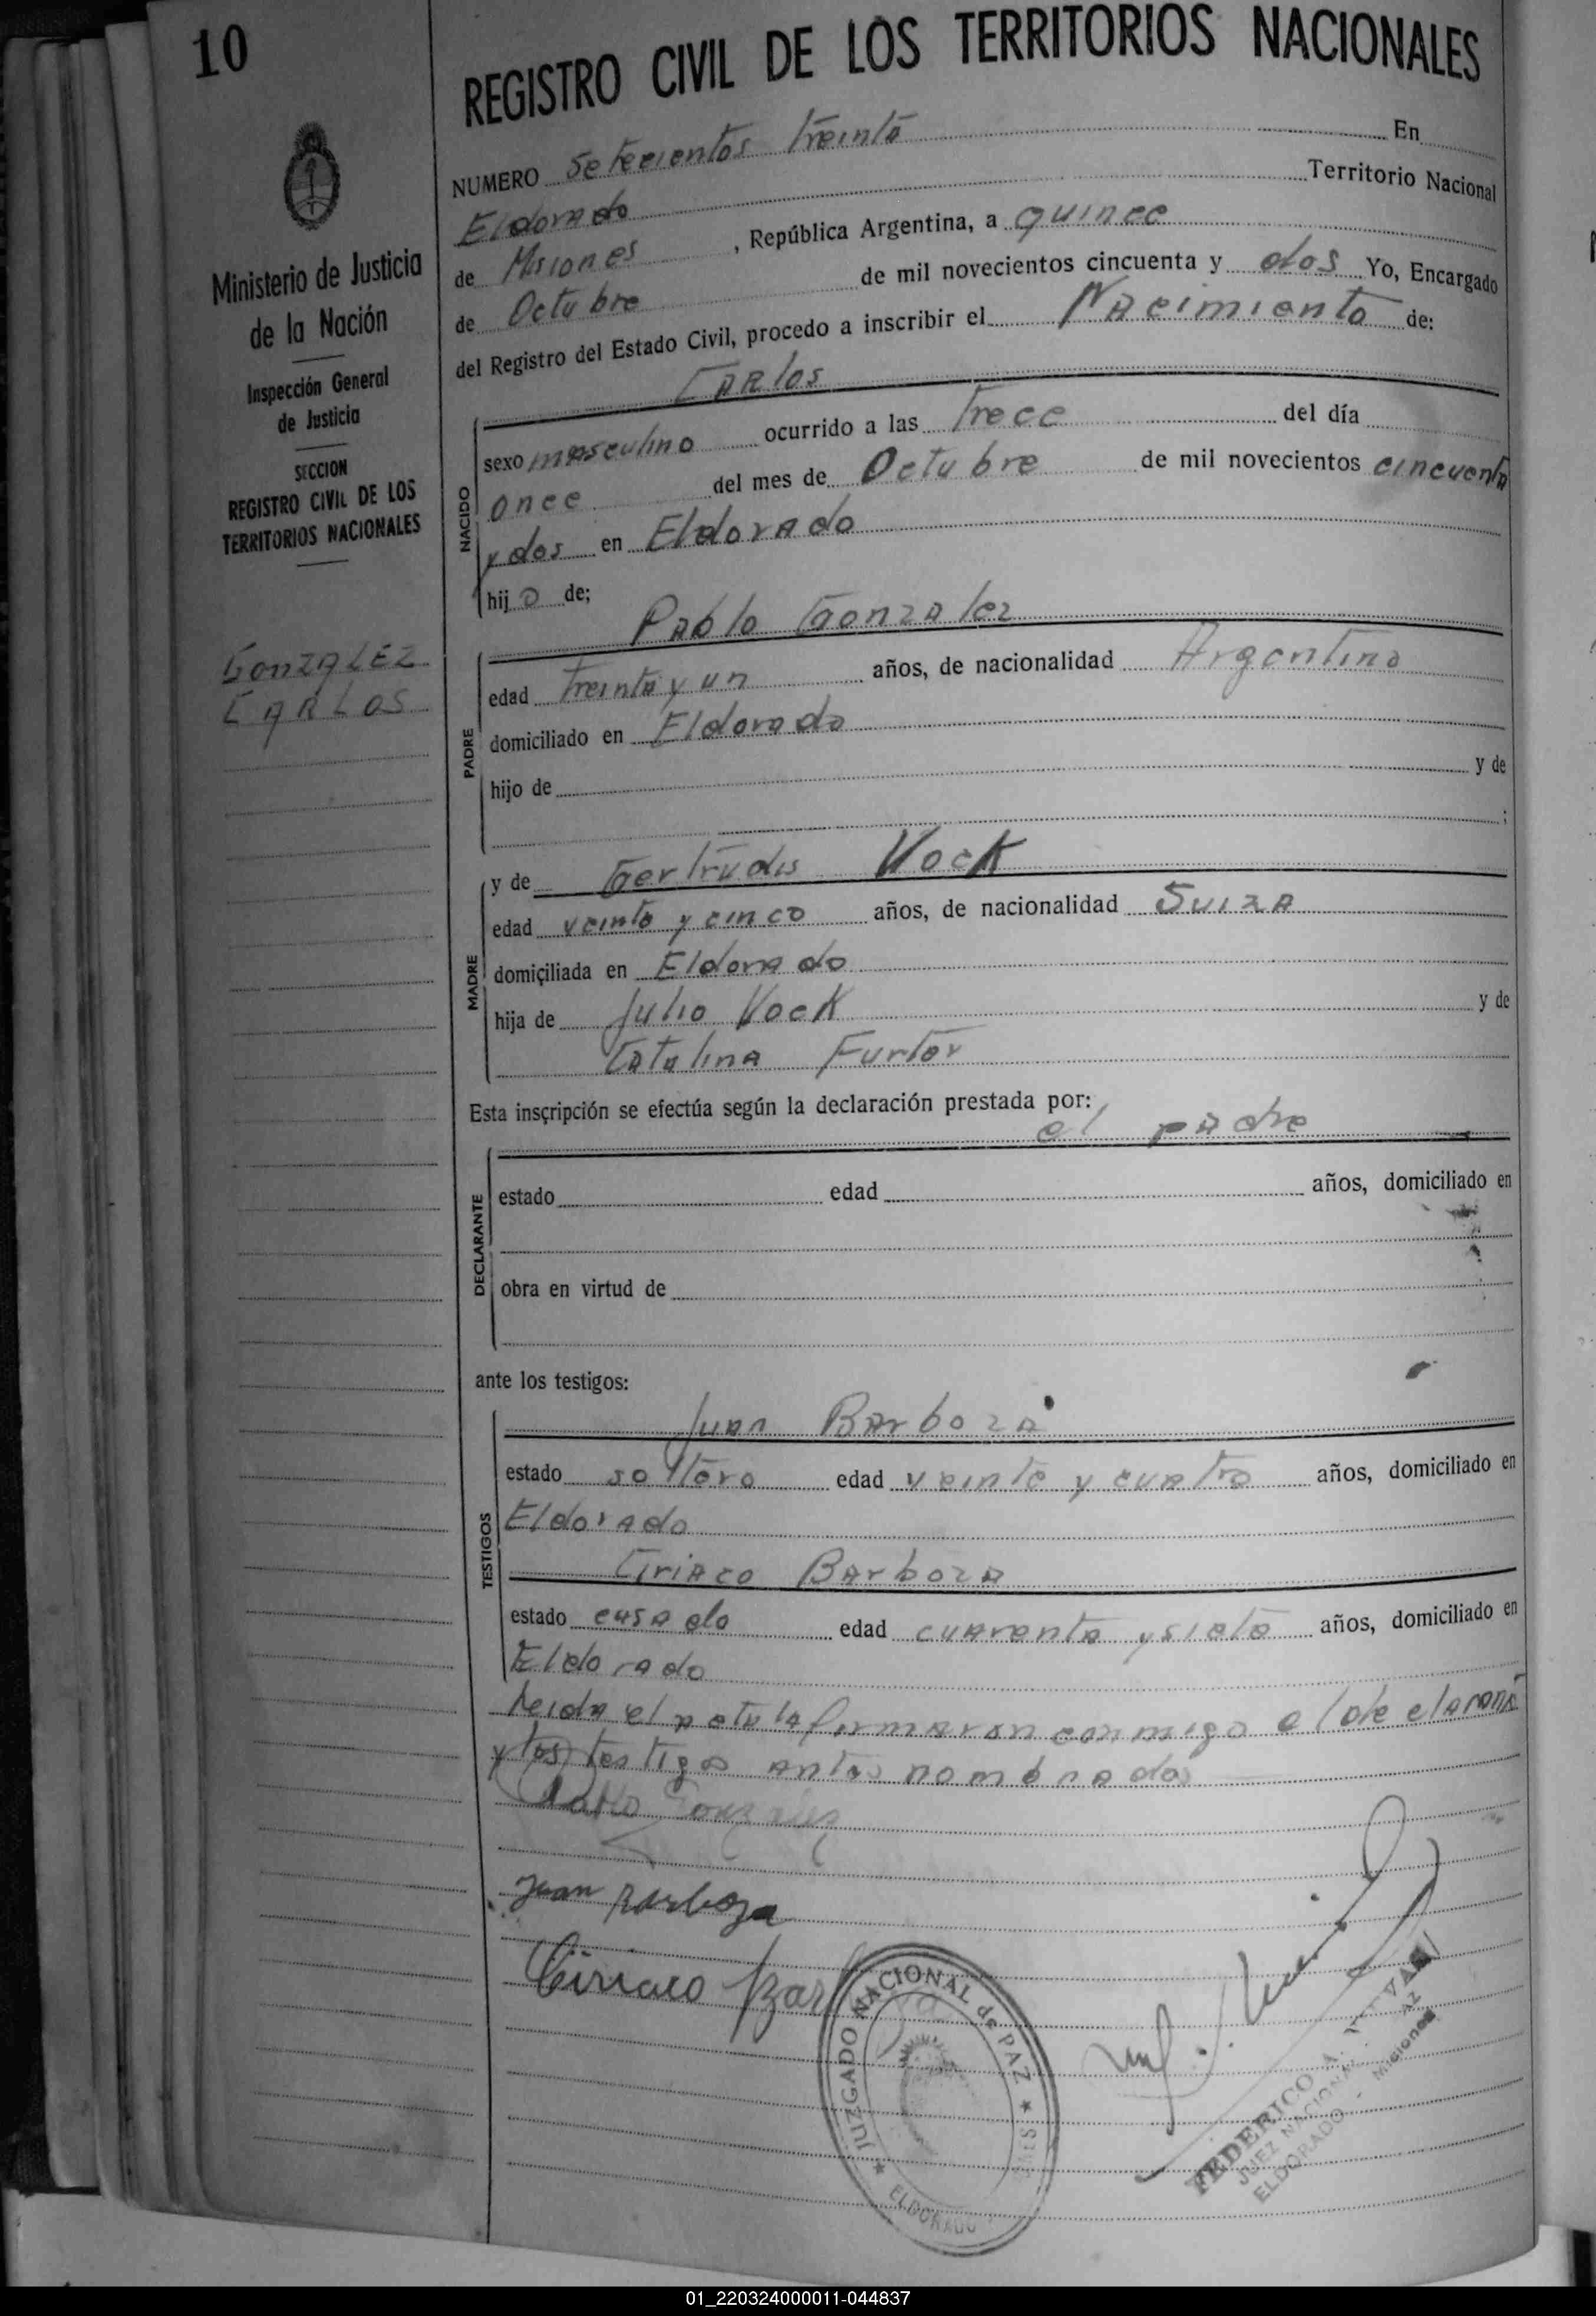 10
REGISTRO CIVIL DE LOS TERRITORIOS NACIONALES
Ministerio de Justicia
de la Nación
Inspección General
de Justicia
SECCION
REGISTRO CIVIL DE LOS
TERRITORIOS NACIONALES
GONZALEZ
CARLOS
NUMERO Setecientos Treinta En
Eldorado Territorio Nacional
de Misiones, República Argentina, a quince
de Octubre de mil novecientos cincuenta y dos Yo, Encargado
del Registro del Estado Civil, procedo a inscribir el Nacimiento de:
CARlos
NACIDO
sexo masculino ocurrido a las Trece del día
once del mes de Octubre de mil novecientos cincuenta
y dos en Eldorado
hijo de;
Pablo Gonzalez
PADRE
edad Treinta y un años, de nacionalidad Argentino
domiciliado en Eldorado
hijo de y de
;
y de Gertrudis Vock
MADRE
edad veinte y cinco años, de nacionalidad Suiza
domiciliada en Eldorado
hija de Julio Vock y de
Catalina Furter
Esta inscripción se efectúa según la declaración prestada por:
el padre
DECLARANTE
estado edad años, domiciliado en
obra en virtud de
ante los testigos:
Juan Barboza
TESTIGOS
estado soltero edad veinte y cuatro años, domiciliado en
Eldorado
Ciriaco Barboza
estado casado edad cuarenta y siete años, domiciliado en
Eldorado
Leida el acta la firmaron conmigo el
y los testigos antes nombrados
Pablo Gonzalez
Juan Barboza
Ciriaco
JUZGADO NACIONAL de PAZ
ELDORADO
FEDERICO A.
JUEZ NACIONAL
ELDORADO - Misiones
01_220324000011-044837